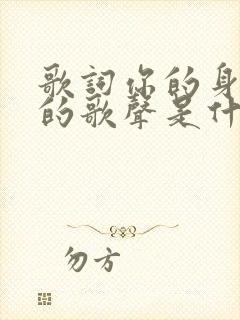 歌詞你的身
的歌聲是什
勿方